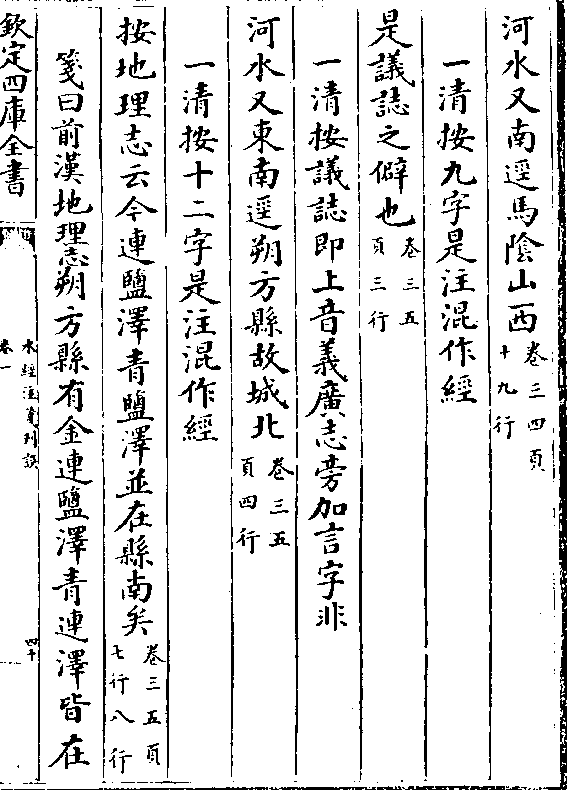 河水又南逕馬陰山西卷三四頁十九行
一清按九字是注混作經
是議誌之僻也卷三五頁三行
一清按議誌即上音義廣志旁加言字非
河水又東南逕朔方縣故城北卷三五頁四行
一清按十二字是注混作經
按地理志云今連鹽澤青鹽澤並在縣南矣卷三五頁七行八行
箋曰前漢地理志朔方縣有金連鹽澤青連澤皆在
欽定四庫全書
水經注箋刊誤
卷一
四十